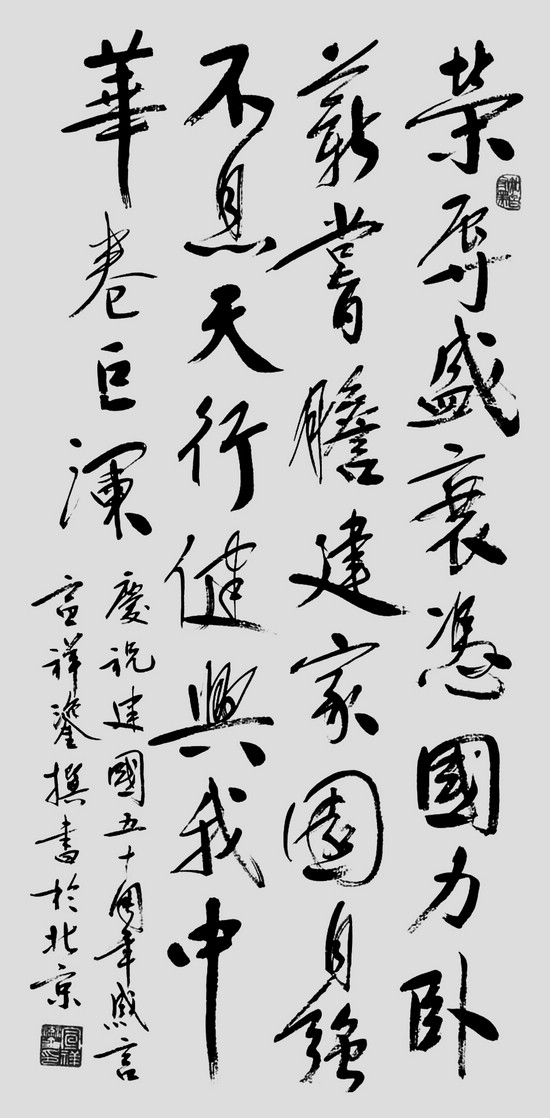 榮辱盛衰憑國力卧
薪嘗膽建家園自強
不息天行健興我中
華卷巨瀾
慶祝建國五十周年感言
宣祥鎏撰書於北京